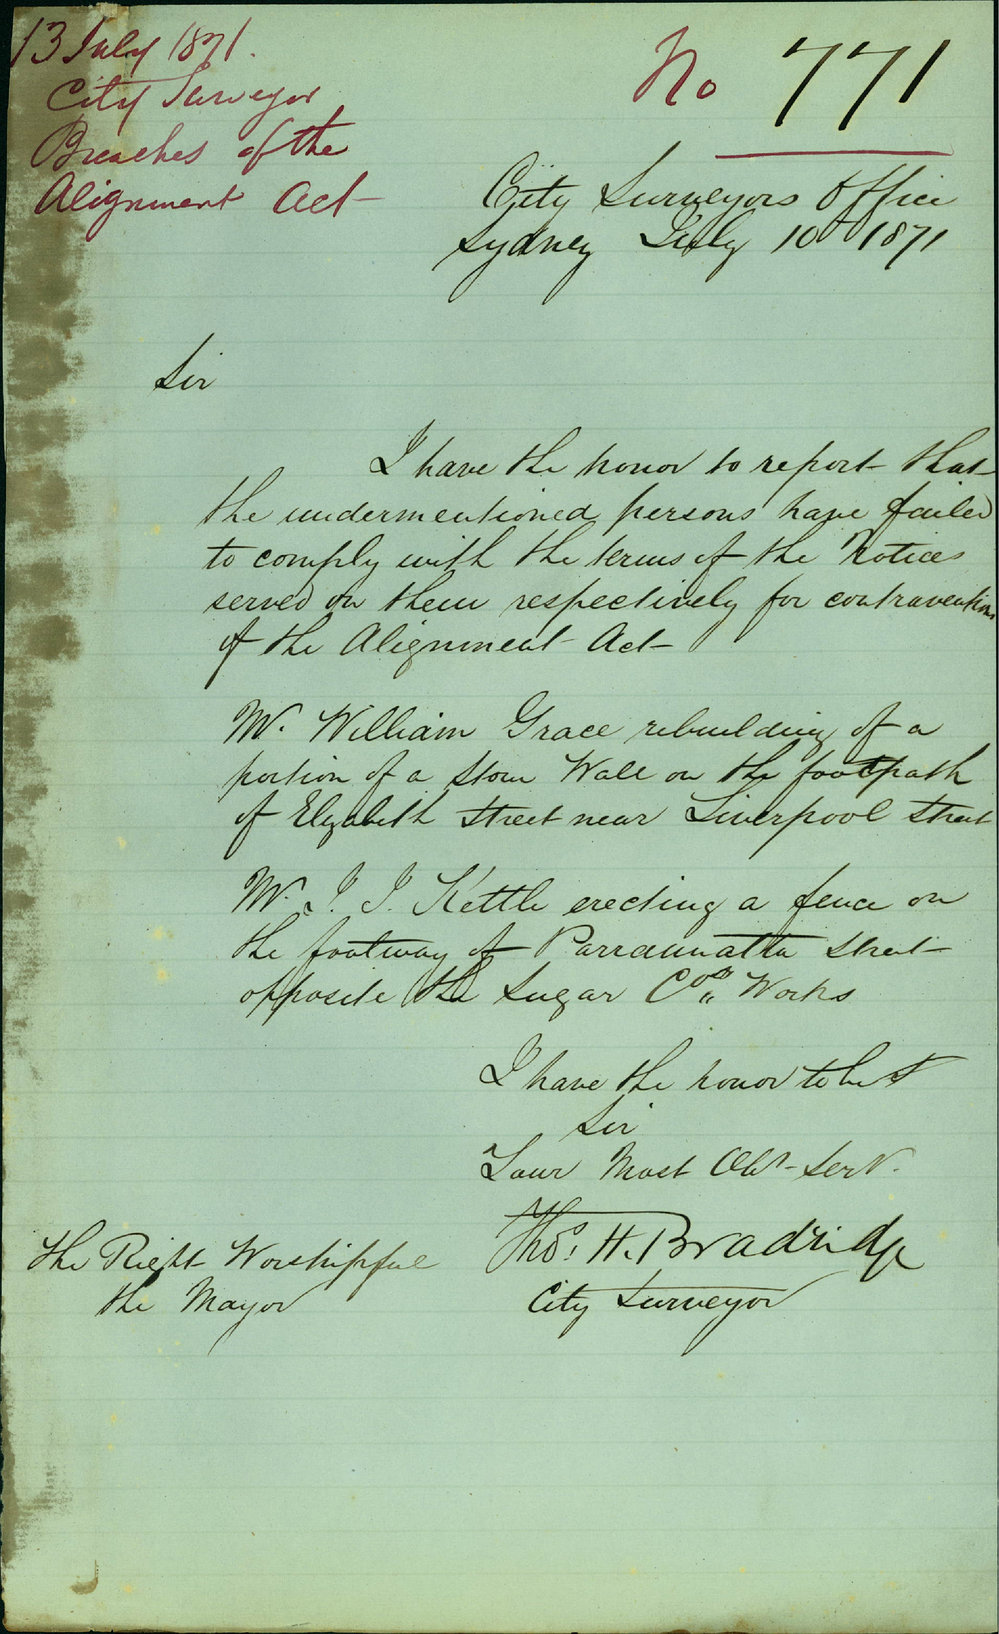 13 July 1871.
City Surveyor
Breaches of the
Alignment Act
No 771
City Surveyors Office
Sydney July 10th 1871
Sir
I have the honor to report that
the undermentioned persons have failed
to comply with the terms of the Notices
served on them respectively for contravention
of the Alignment Act
Mr. William Grace rebuilding of a
portion of a Stone Wall on the footpath
of Elizabeth Street near Liverpool Street
Mr. J. J. Kettle erecting a fence on
the footway of Parramatta Street
opposite the Sugar Coys Works
I have the honor to be
Sir
Your Most Obt Servt.
Thos. H. Bradridge
City Surveyor
The Right Worshipful
the Mayor